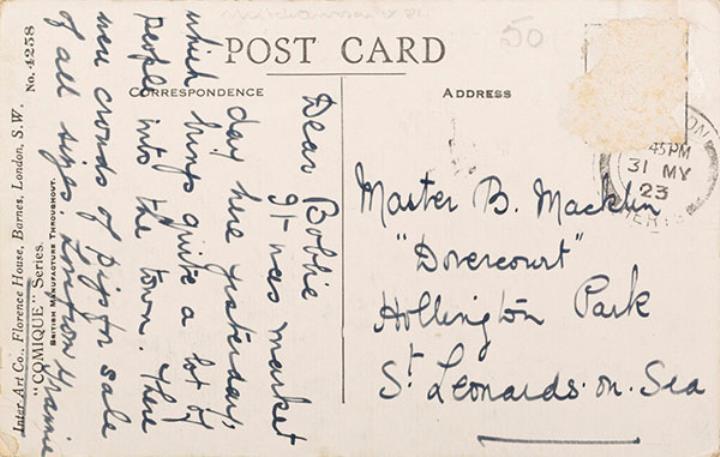 POST CARD
50
CORRESPONDENCE
ADDRESS
Dear Bobbie
It was market
day here yesterday,
which brings quite a lot of
people into the town. There
were crowds of pigs for sale
of all sizes. Love from Grannie
Master B. Macklin
"Dovercourt"
Hollington Park
St Leonards-on-Sea
45PM
31 MY
23
HERTS
Inter Art Co., Florence House, Barnes, London, S.W.
"COMIQUE" Series.
BRITISH MANUFACTURE THROUGHOUT.
No. 4258